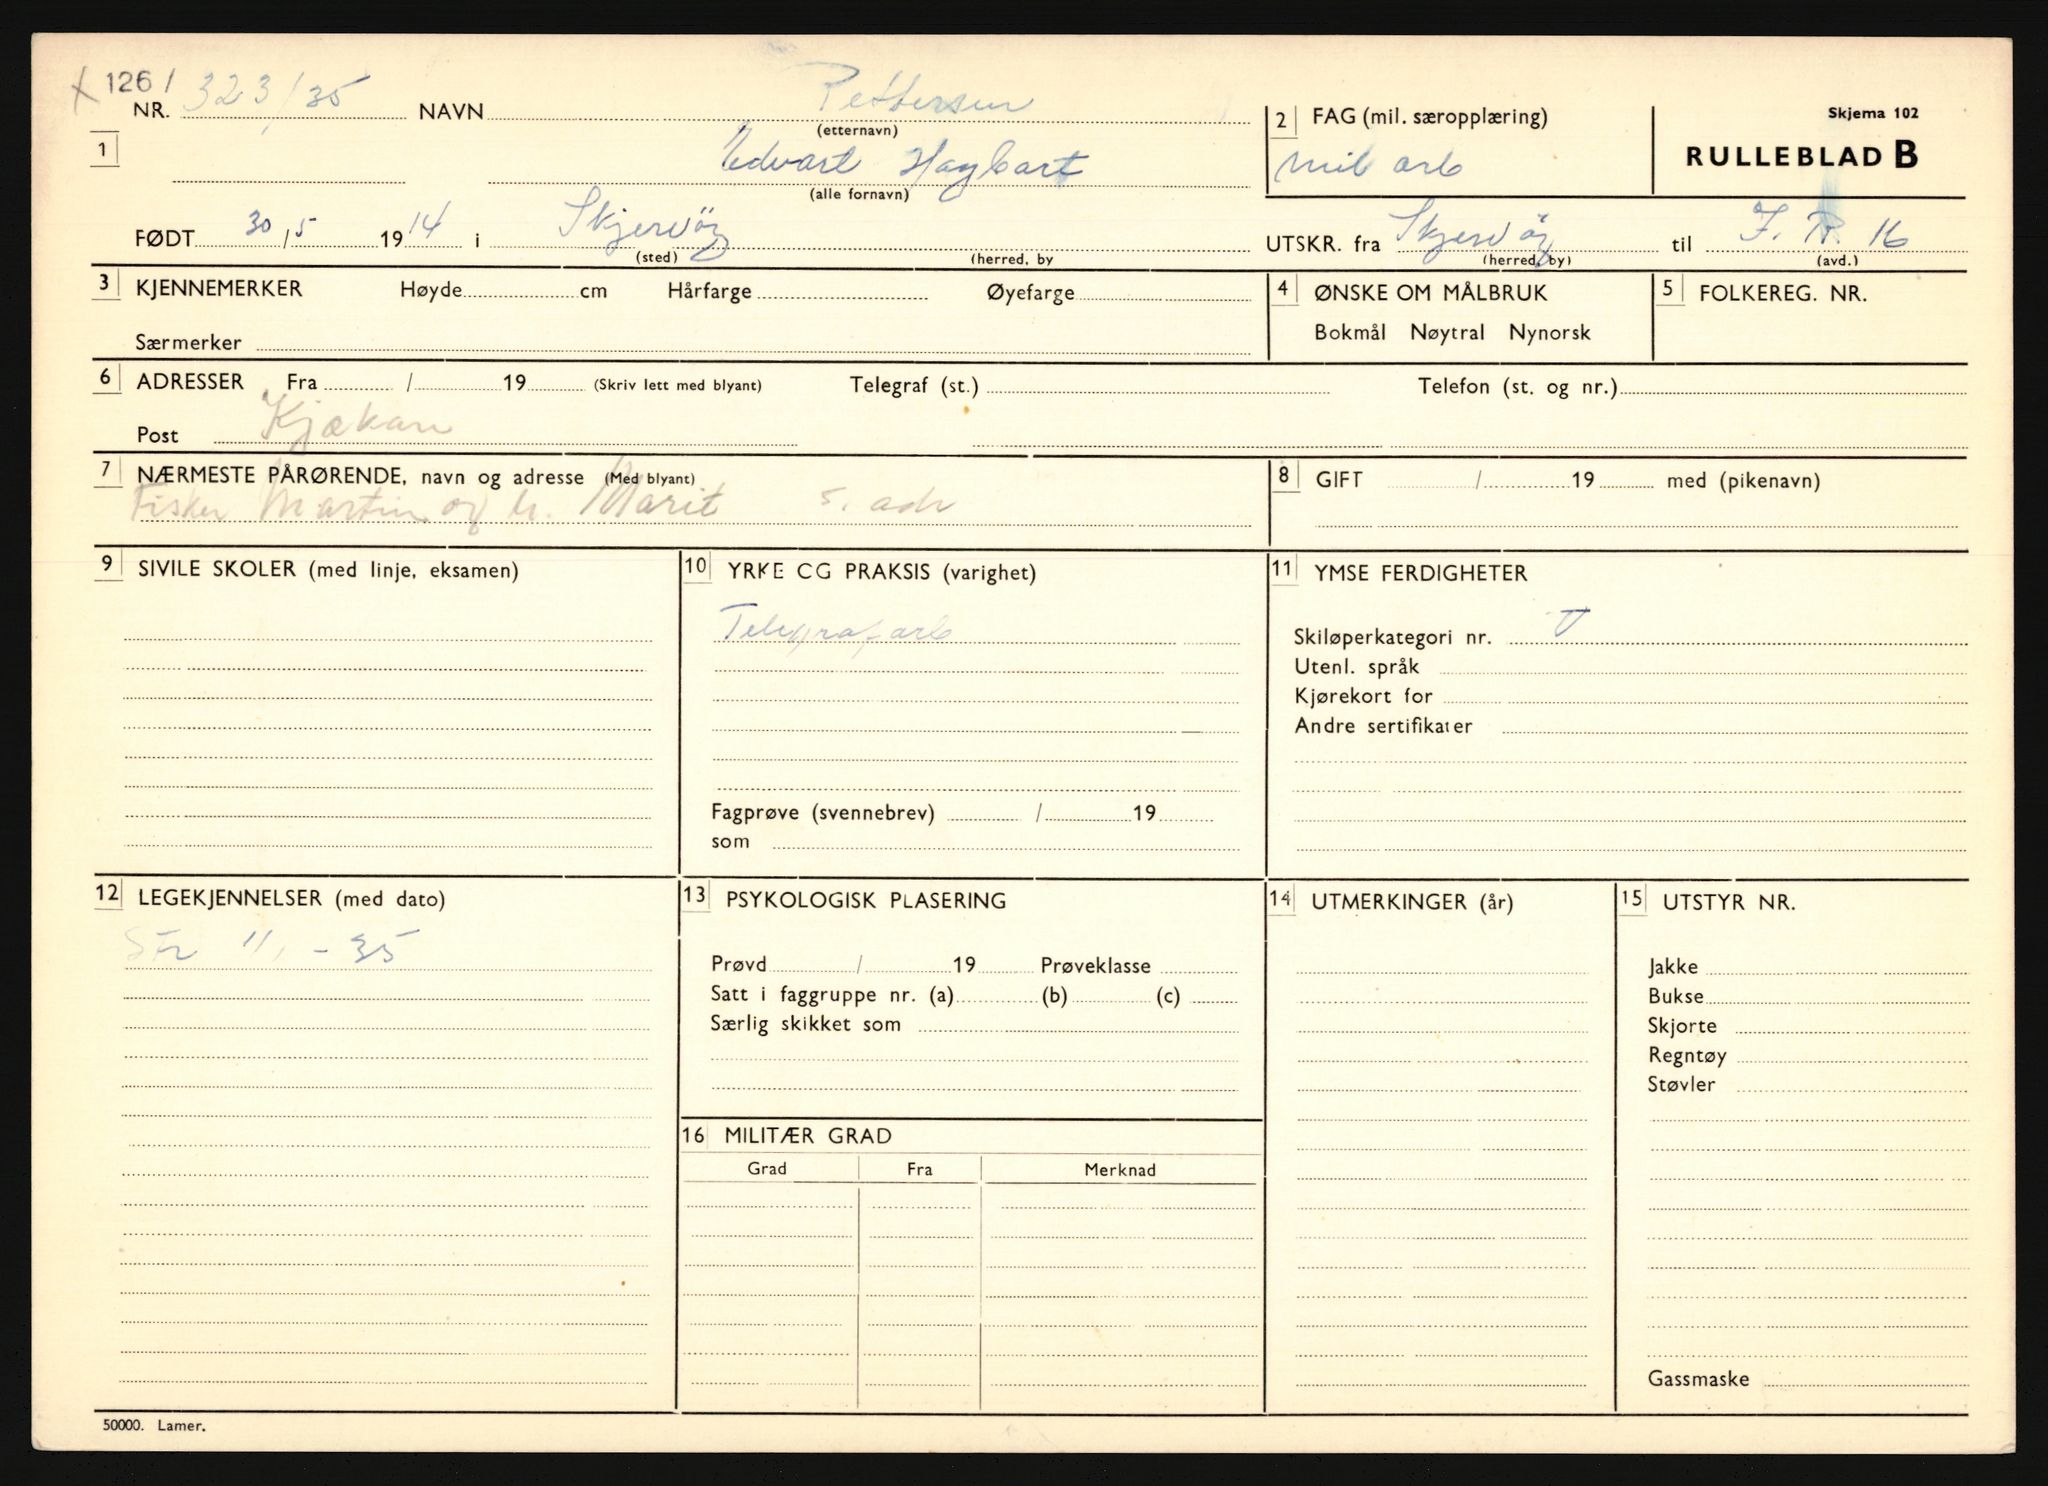 X 1261
NR. 323/35 NAVN Pettersen
(etternavn)
1
Edvart Hagbart
(alle fornavn)
2 FAG (mil. særopplæring)
mil arb
Skjema 102
RULLEBLAD B
FØDT 30/5 1914 i Skjervöy
(sted) (herred, by
UTSKR. fra Skjervöy til I.R. 16
(herred, by) (avd.)
3 KJENNEMERKER Høyde cm Hårfarge Øyefarge
Særmerker
4 ØNSKE OM MÅLBRUK
Bokmål Nøytral Nynorsk
5 FOLKEREG. NR.
6 ADRESSER Fra / 19 (Skriv lett med blyant) Telegraf (st.) Telefon (st. og nr.)
Post Kjækan
7 NÆRMESTE PÅRØRENDE, navn og adresse (Med blyant)
Fisker Martin og h. Marit s. adr
8 GIFT / 19 med (pikenavn)
9 SIVILE SKOLER (med linje, eksamen)
10 YRKE CG PRAKSIS (varighet)
Telegrafarb
Fagprøve (svennebrev) / 19
som
11 YMSE FERDIGHETER
Skiløperkategori nr.
Utenl. språk
Kjørekort for
Andre sertifikater
12 LEGEKJENNELSER (med dato)
Str 11. - 35
13 PSYKOLOGISK PLASERING
Prøvd / 19 Prøveklasse
Satt i faggruppe nr. (a) (b) (c)
Særlig skikket som
14 UTMERKINGER (år)
15 UTSTYR NR.
Jakke
Bukse
Skjorte
Regntøy
Støvler
Gassmaske
16 MILITÆR GRAD
Grad Fra Merknad
50000. Lamer.